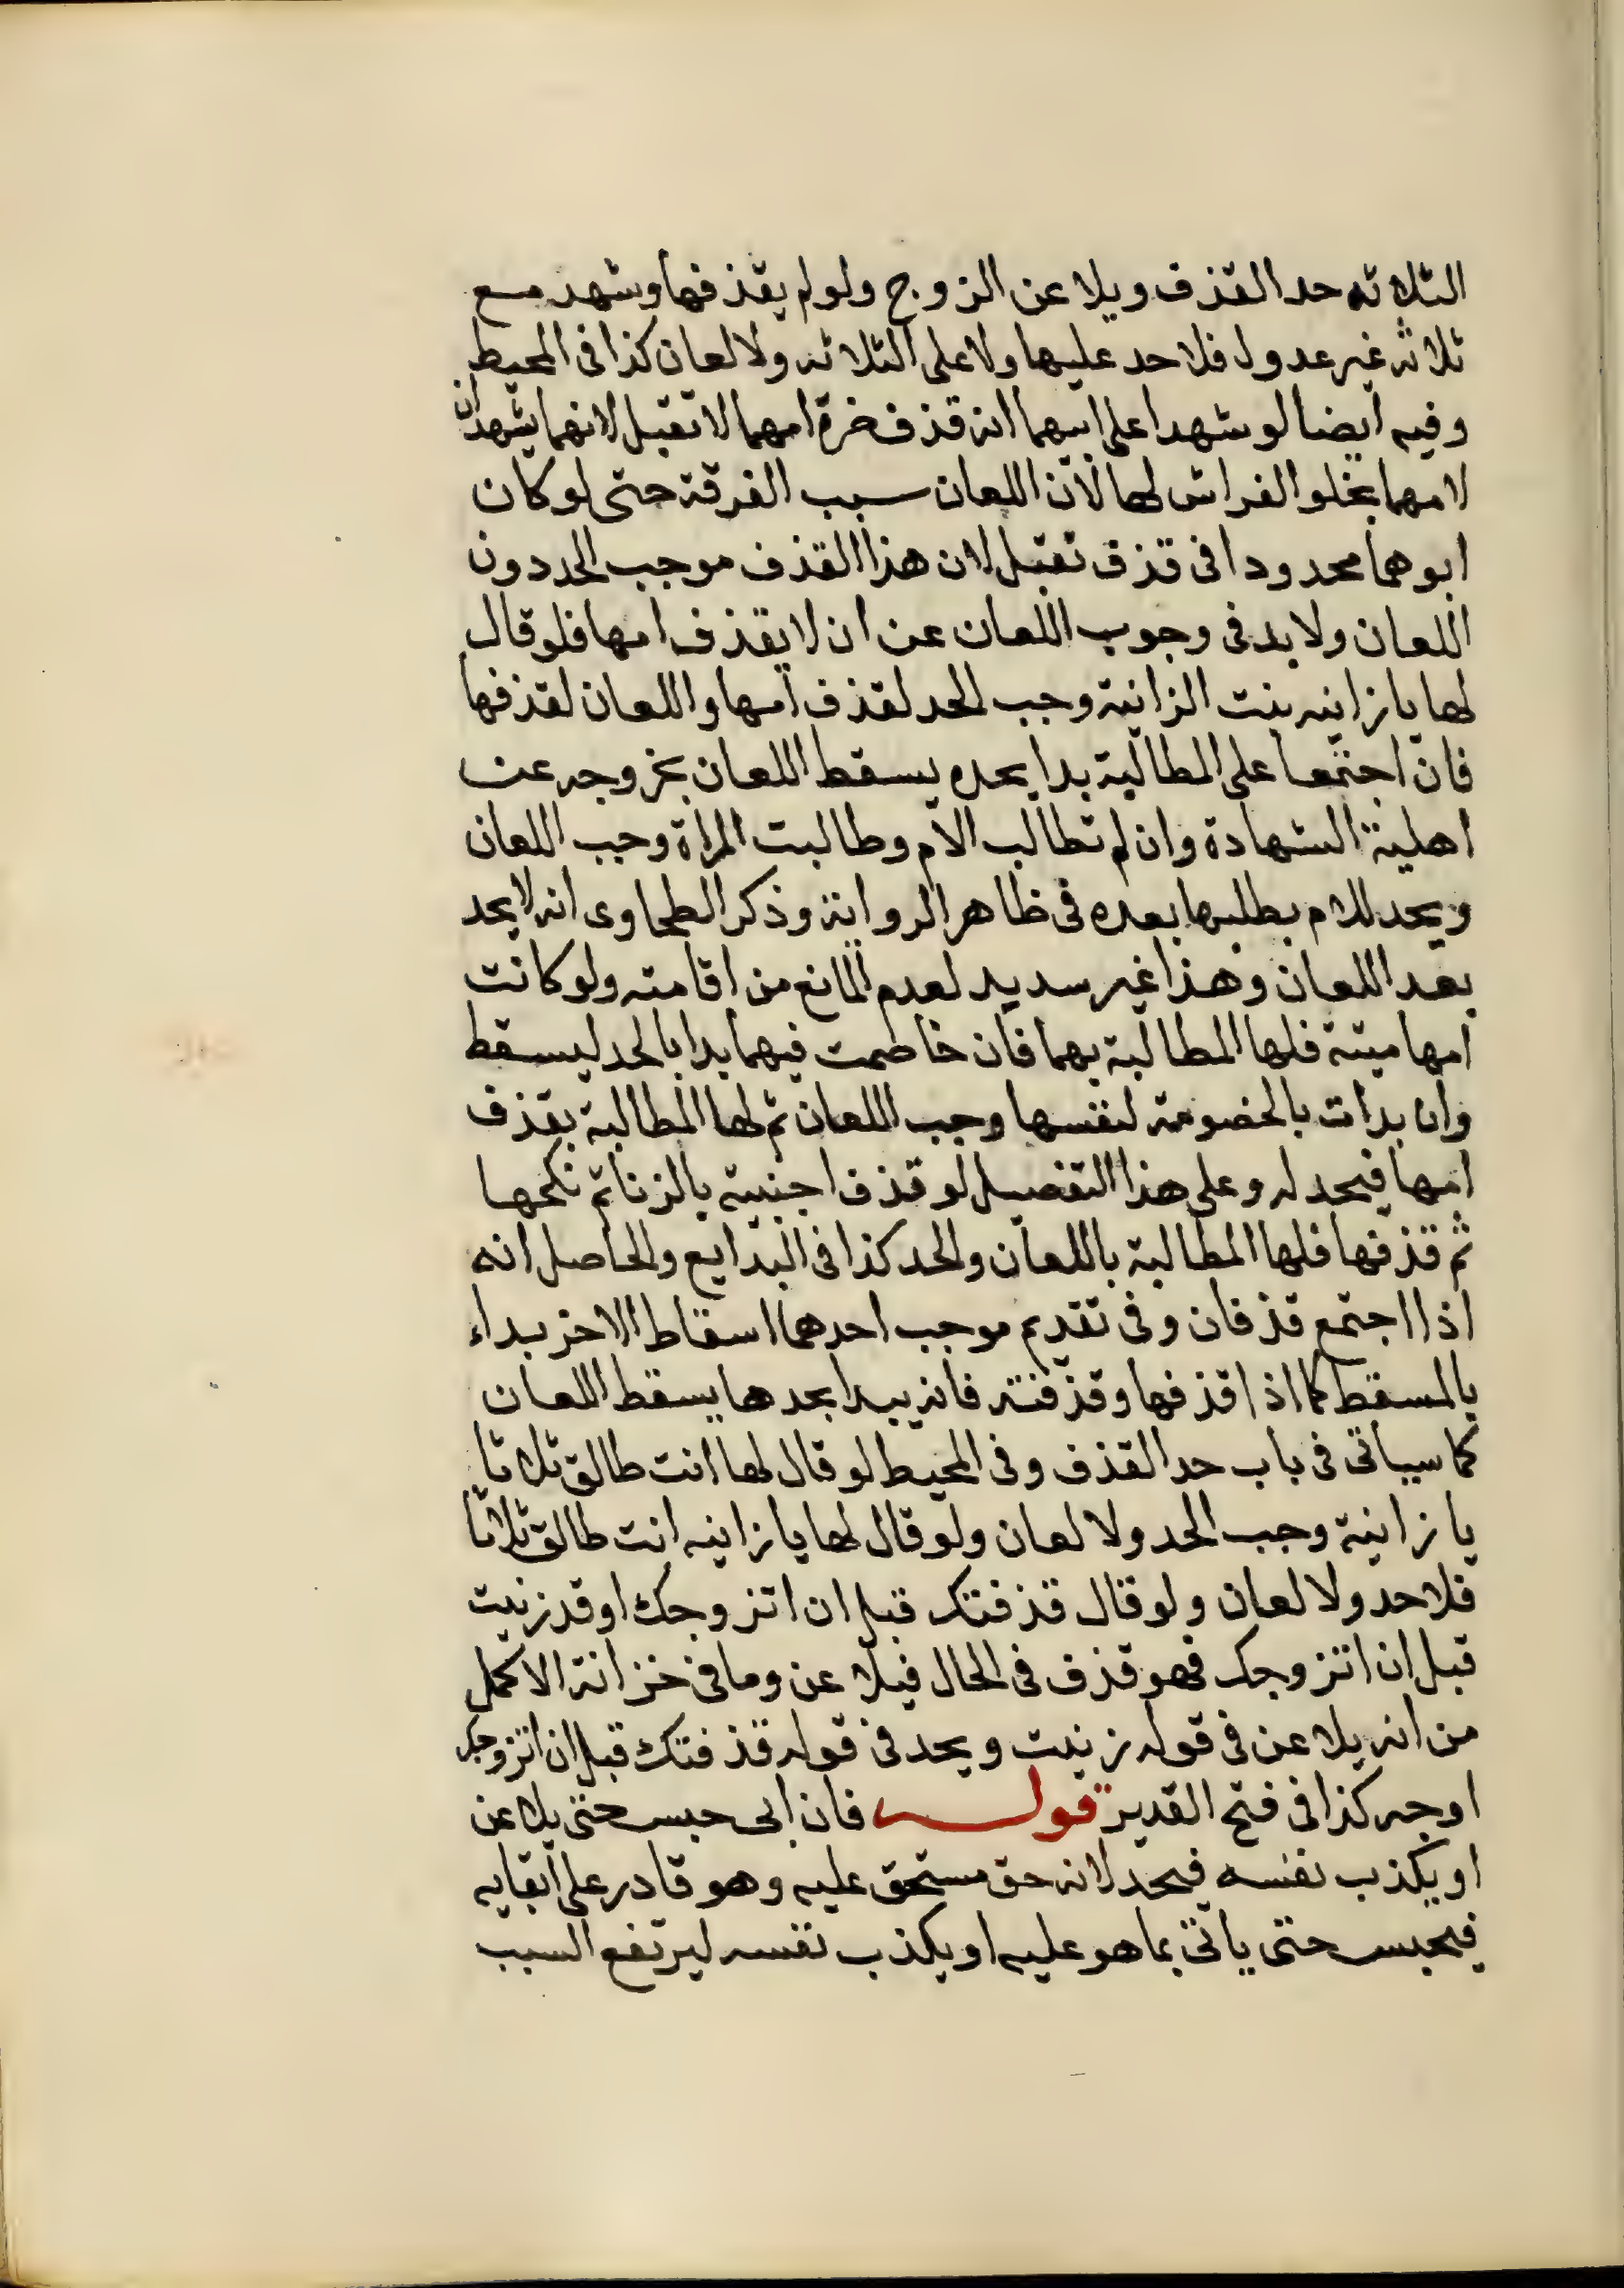 الثلاثه حد القذف ويلاعن الزوج ولو لم يقذفها وشهد مع
ثلاثه غير عدول فلا حد عليها ولا على الثلاثه ولا لعان كذا في المحيط
وفيه ايضا لو شهدا على ابيهما انه قذف ضرة امهما لا تقبل لانهما يشهدان
لامهما بخلو الفراش لها لان اللعان سبب الفرقة حتى لو كان
ابوهما محدودا في قذف تقبل لان هذا القذف موجب الحد دون
اللعان ولا بد في وجوب اللعان عن ان لا يقذف امها فلو قال
لها يا زانيه بنت الزانية وجب الحد لقذف امها واللعان لقذفها
فان اجتمعا على المطالبة بدا بحده يسقط اللعان بخروجه عن
اهلية الشهادة وان لم تطالب الام وطالبت المراة وجب اللعان
ويحد للام بطلبها بعده في ظاهر الرواية وذكر الطحاوى انه لا يحد
بعد اللعان وهذا غير سديد لعدم المانع من اقامته ولو كانت
امها ميتة فلها المطالبة بهما فان خاصمت فيهما بدا بالحد ليسقط
وان بدات بالخصومة لنفسها وجب اللعان ثم لها المطالبة بقذف
امها فيحد له وعلى هذا التفصيل لو قذف اجنبية بالزنا ثم نكحها
ثم قذفها فلها المطالبة باللعان والحد كذا في البدايع والحاصل انه
اذا اجتمع قذفان وفي تقديم موجب احدهما اسقاط الاخر بداء
بالمسقط كما اذا قذفها وقذفته فانه يبدا بحدها يسقط اللعان
كما سياتى في باب حد القذف وفي المحيط لو قال لها انت طالق ثلاثا
يا زانية وجب الحد ولا لعان ولو قال لها يا زانيه انت طالق ثلاثا
فلا حد ولا لعان ولو قال قذفتك قبل ان اتزوجك او قد زنيت
قبل ان اتزوجك فهو قذف في الحال فيلاعن وما في خزانة الاكمل
من انه يلاعن في قوله زنيت ويحد في قوله قذفتك قبل ان اتزوجك
اوجه كذا في فتح القدير قوله فان ابى حبس حتى يلاعن
او يكذب نفسه فيحد لانه حق مستحق عليه وهو قادر على ايفايه
فيحبس حتى ياتى بما هو عليه او يكذب نفسه ليرتفع السبب